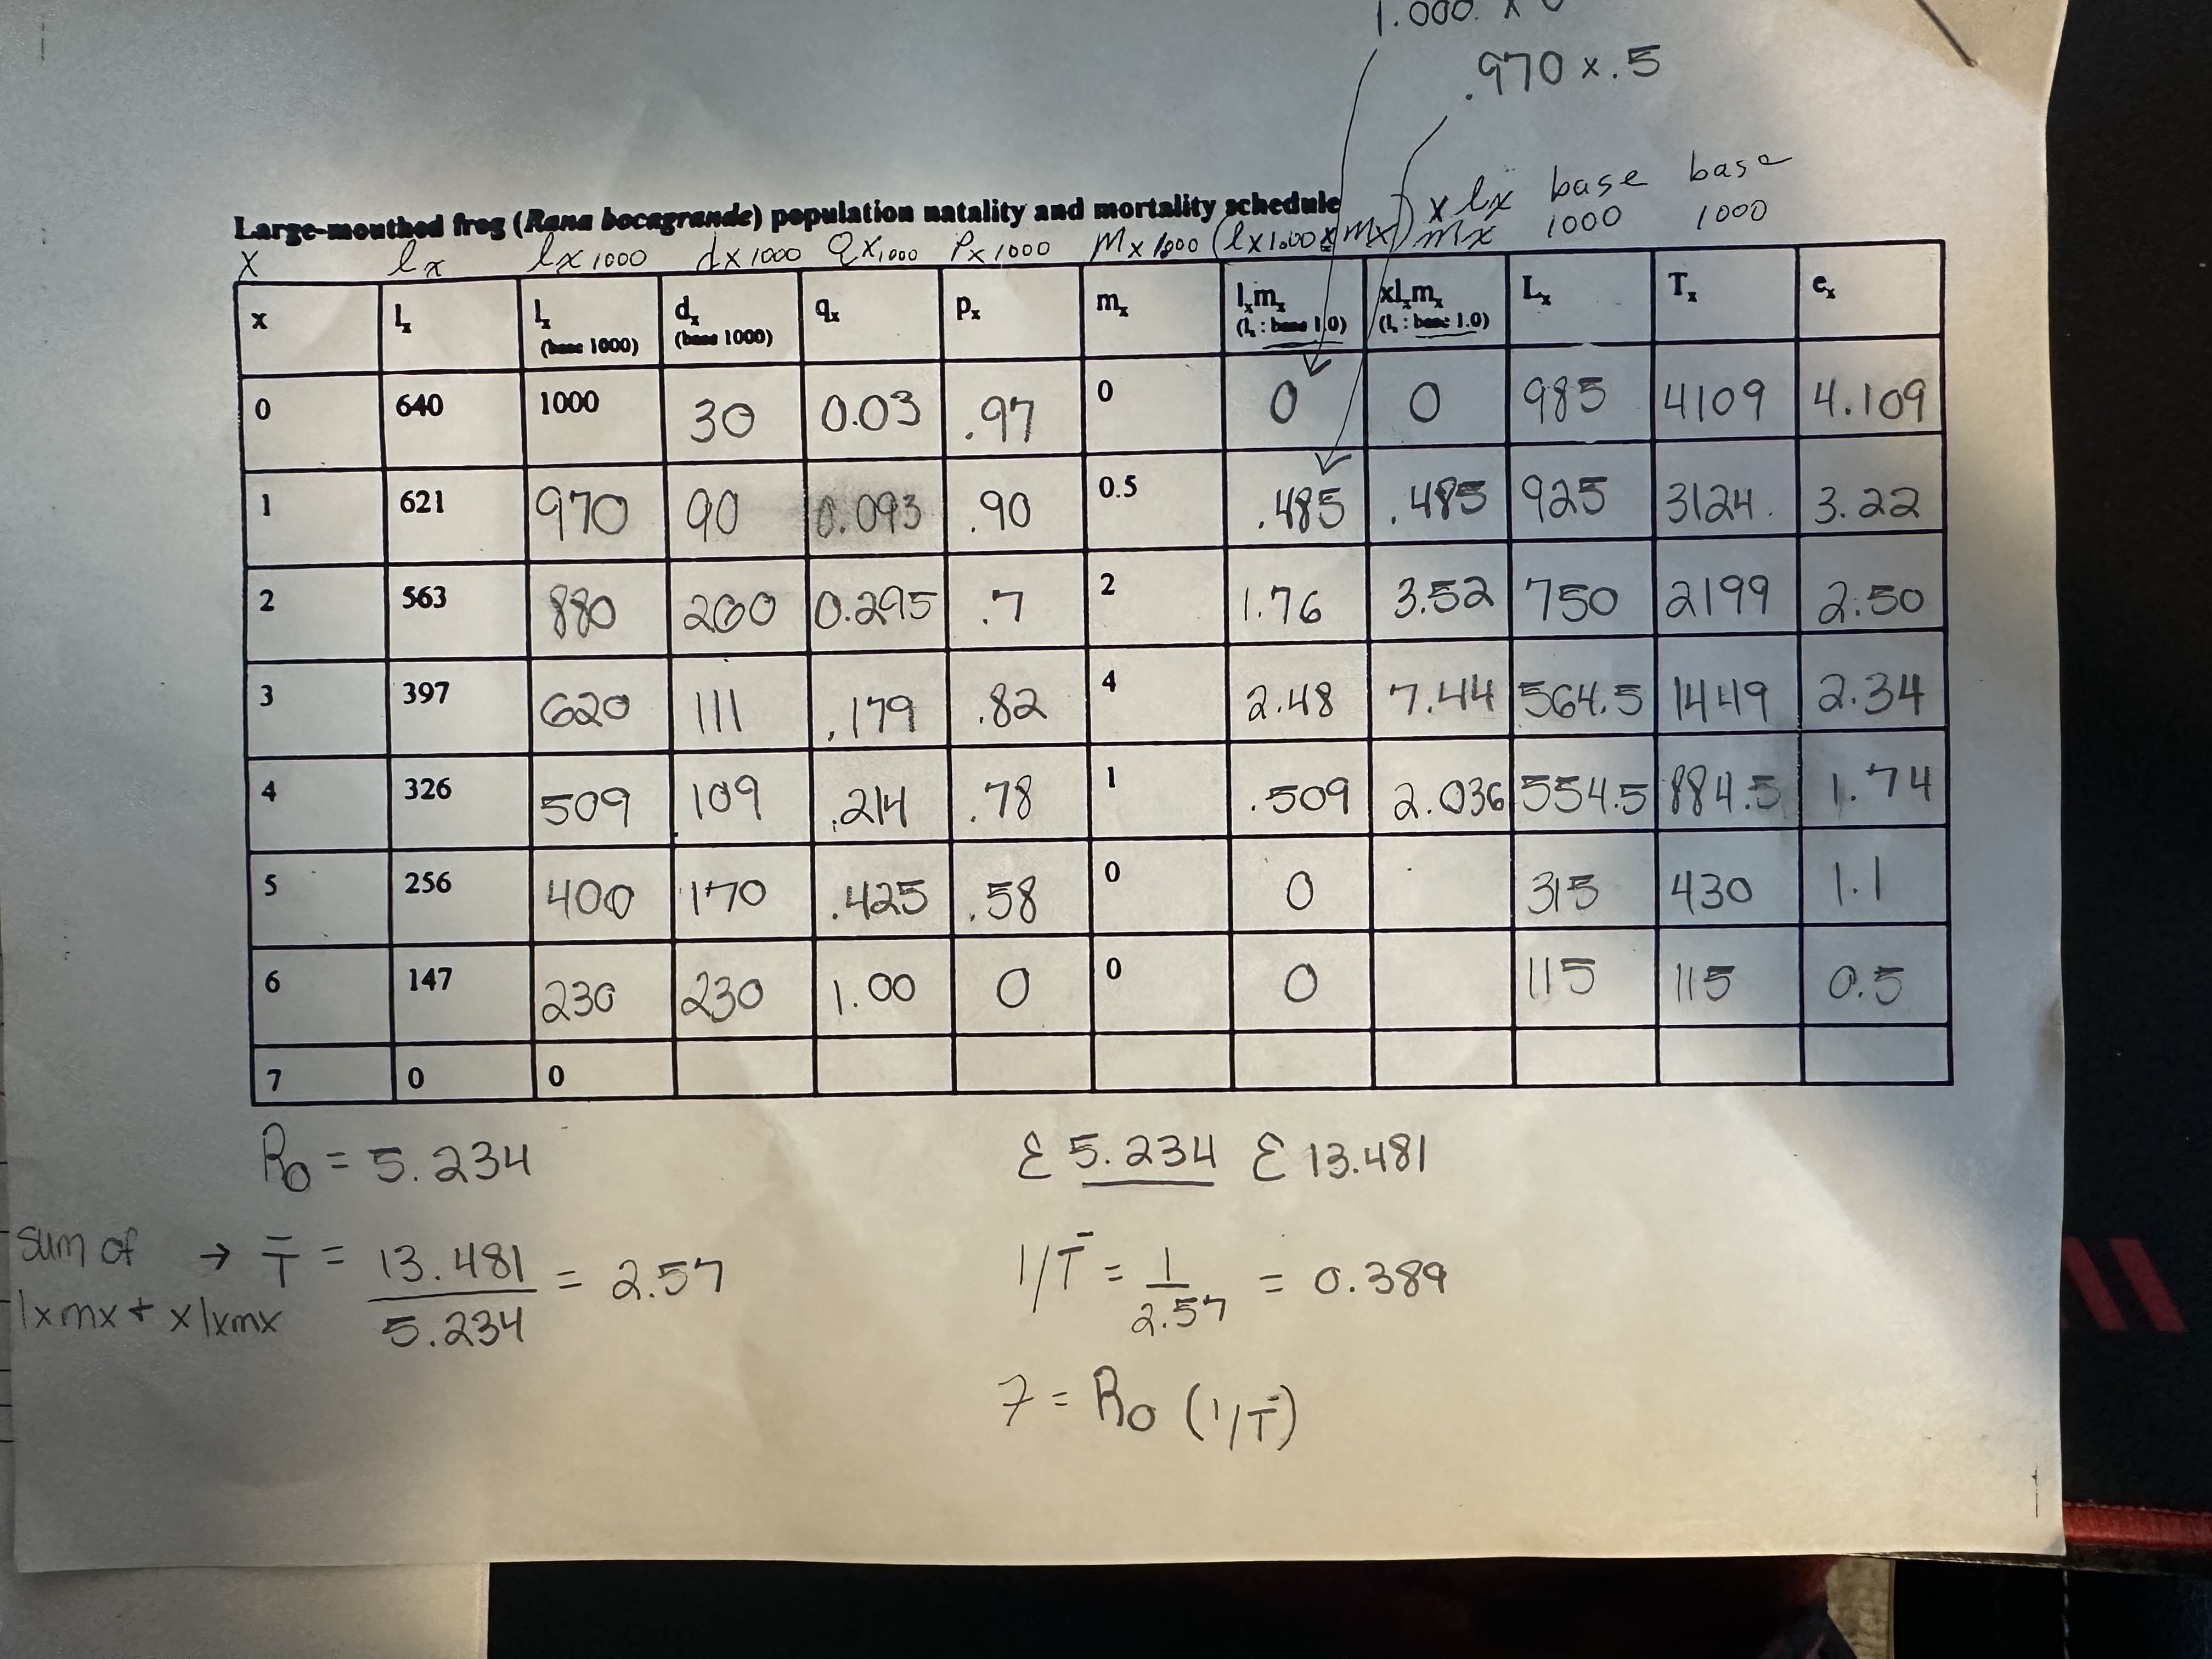 1.000 x 0
.970 x .5
Large-mouthed frog (Rana bocagrande) population natality and mortality schedule
x lx base base
mx 1000 1000
X lx lx 1000 dx 1000 Qx 1000 Px 1000 Mx 1000 (lx 1.00 x mx)
x lx lx (base 1000) dx (base 1000) qx px mx lxmx (lx : base 1.0) xlxmx (lx : base 1.0) Lx Tx ex
0 640 1000 30 0.03 .97 0 0 0 985 4109 4.109
1 621 970 90 0.093 .90 0.5 .485 .485 925 3124. 3.22
2 563 880 260 0.295 .7 2 1.76 3.52 750 2199 2.50
3 397 620 111 .179 .82 4 2.48 7.44 564.5 1449 2.34
4 326 509 109 .214 .78 1 .509 2.036 554.5 884.5 1.74
5 256 400 170 .425 .58 0 0 315 430 1.1
6 147 230 230 1.00 0 0 0 115 115 0.5
7 0 0
R0 = 5.234 Σ 5.234 Σ 13.481
sum of → T̄ = 13.481 / 5.234 = 2.57 1/T̄ = 1/2.57 = 0.389
lxmx + xlxmx
7 = R0 (1/T̄)